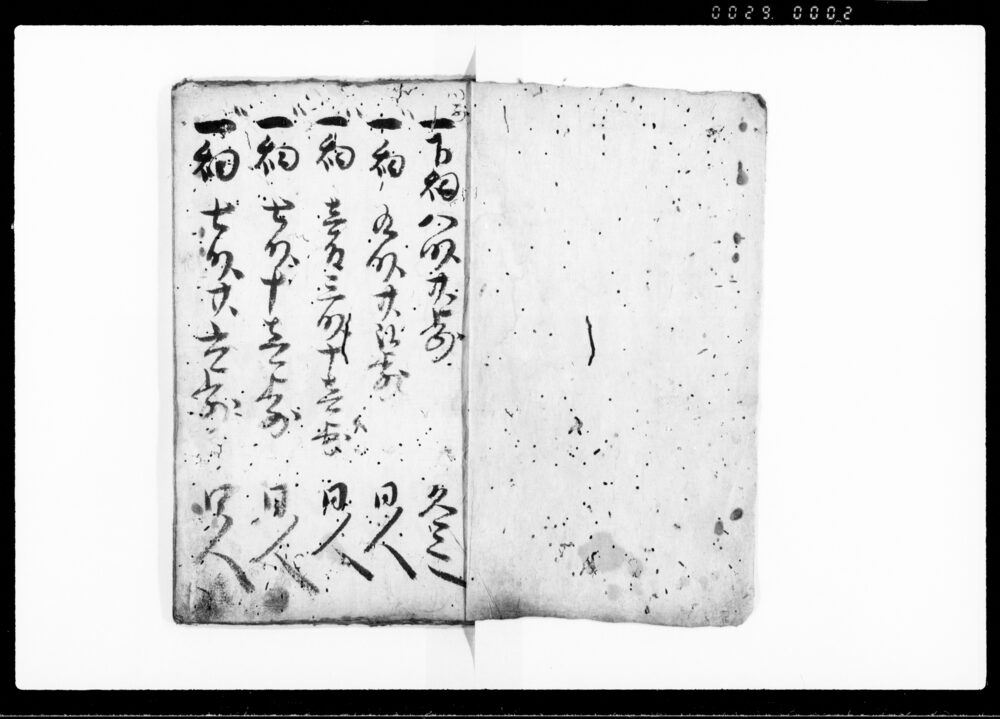 0029. 0002
一下畑八畝廿歩 久
一畑 九畝廿歩 同人
一畑 壱反三畝十壱歩 同人
一畑 七畝十壱歩 同人
一畑 七畝廿壱歩 同人